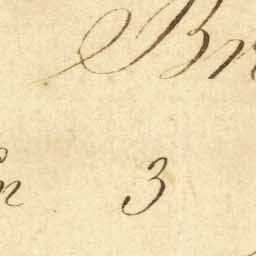 Br
n 3